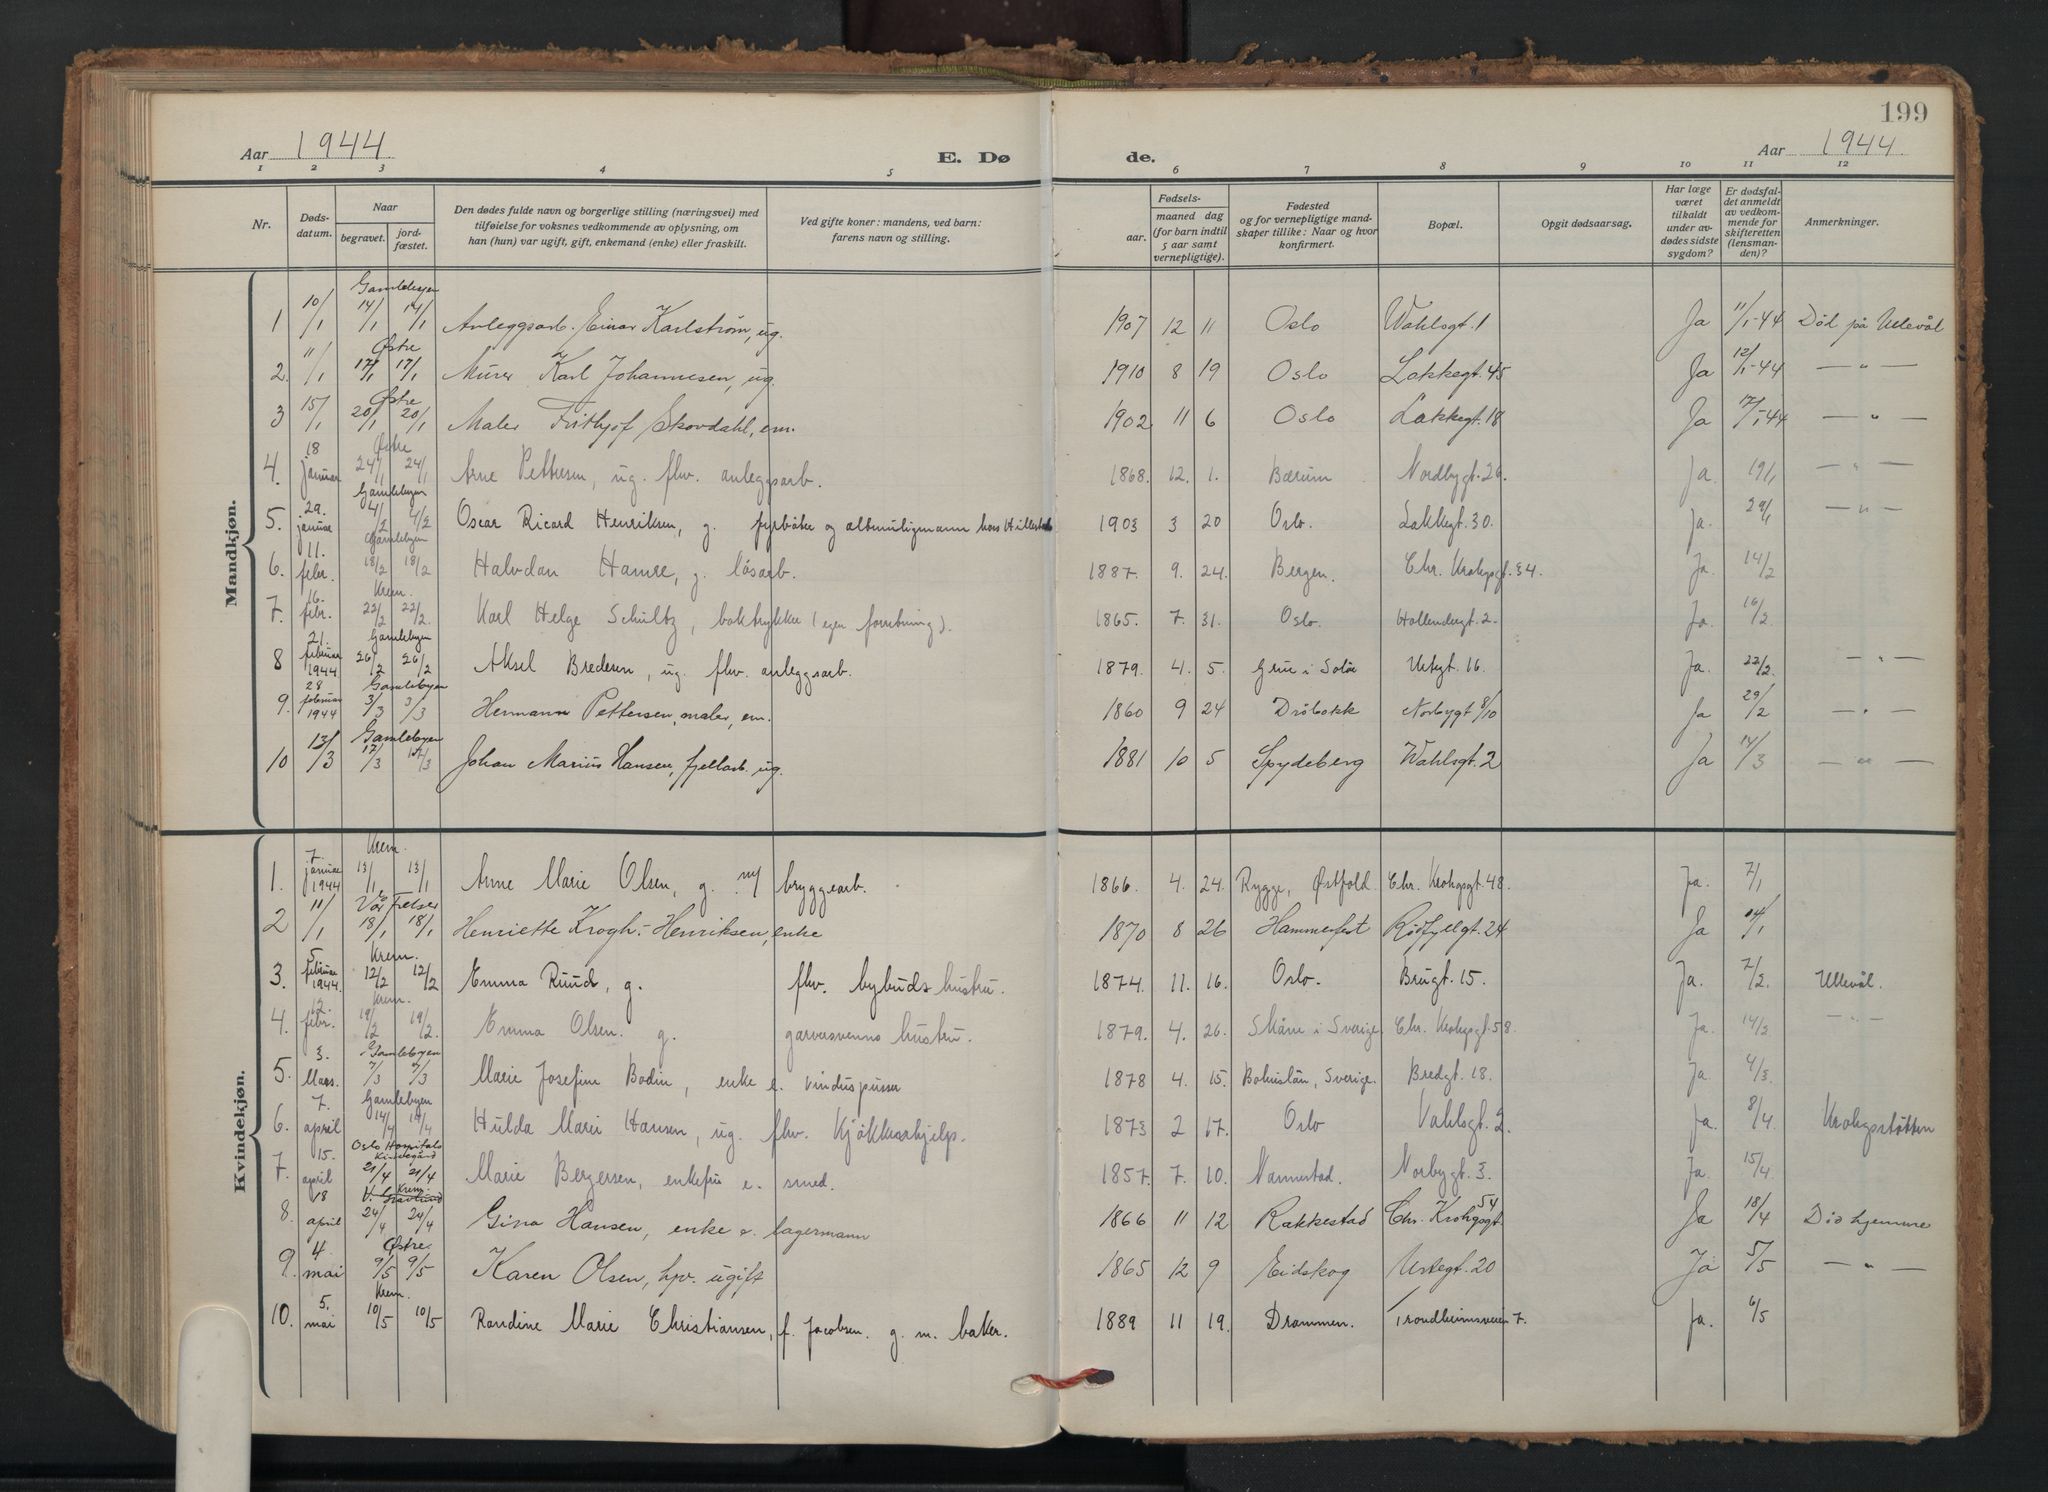 199
Aar 1944
E. Dø
de.
Aar 1944
1 2 3 4 5 6 7 8 9 10 11 12
Nr.
Døds-
datum.
Naar
begravet.
jord-
fæstet.
Den dødes fulde navn og borgerlige stilling (næringsvei) med
tilføielse for voksnes vedkommende av oplysning, om
han (hun) var ugift, gift, enkemand (enke) eller fraskilt.
Ved gifte koner: mandens, ved barn:
farens navn og stilling.
Fødsels-
aar.
maaned
dag
(for barn indtil
5 aar samt
vernepligtige).
Fødested
og for vernepligtige mand-
skaper tillike: Naar og hvor
konfirmert.
Bopæl.
Opgit dødsaarsag.
Har læge
været
tilkaldt
under av-
dødes sidste
sygdom?
Er dødsfal-
det anmeldt
av vedkom-
mende for
skifteretten
(lensman-
den)?
Anmerkninger.
Mandkjøn.
Gamlebyen
1 10/1 14/1 14/1 Anleggsarb. Einar Karlstrøm, ug. 1907 12 11 Oslo Wahlsgt. 1 Ja 11/1-44 Død på Ullevål
Østre
2. 11/1 17/1 17/1 Murer Karl Johannesen, ug. 1910 8 19 Oslo Lakkegt. 45 Ja 12/1-44 — " —
Østre
3 15/1 20/1 20/1 Maler Frithjof Skovdahl, em. 1902 11 6 Oslo Lakkegt. 18 Ja 17/1-44 — " —
Østre
4. 18 januar 24/1 24/1 Arne Pettersen, ug. fhv. anleggsarb. 1868. 12. 1. Bærum Nordbygt. 26. Ja. 19/1 — " —
Gamlebyen
5. 29. januar 4/2 4/2 Oscar Ricard Henriksen, g. fyrbøter og altmuligmann hos 1903 3 20 Oslo. Lakkegt. 30. Ja. 29/1 — " —
Gamlebyen
6. 11. febr. 18/2 18/2 Halvdan Hamre, g. løsarb. 1887. 9. 24. Bergen. Chr. Krohgsgt. 34. Ja. 14/2
Krem.
7. 16. febr. 22/2 22/2. Karl Helge Schultz, boktrykker (egen forretning). 1865. 7. 31. Oslo. Hollendergt. 2. Ja. 16/2
Gamlebyen
8 21. februar 1944 26/2 26/2 Aksel Bredesen, ug. fhv. anleggsarb. 1879. 4. 5. Grue i Solør Urtegt. 16. Ja. 22/2. — " —
Gamlebyen
9. 28 februar 1944 3/3 3/3 Hermann Pettersen, maler, em. 1860 9 24 Drøbakk Norbygt 8/10 Ja 29/2 — " —
Gamlebyen
10 13/3 17/3 17/3 Johan Marius Hansen, fjellarb. ug. 1881 10 5 Spydeberg Wahlsgt. 2 Ja 14/3 — " —
Kvindekjøn.
Krem.
1. 7. januar 1944 13/1 13/1 Anne Marie Olsen, g. m/ bryggearb. 1866. 4. 24. Rygge, Østfold. Chr. Krohgsgt. 48. Ja. 7/1
Vår Frelser
2 11/1 18/1 18/1 Henriette Krogh-Henriksen, enke 1870 8 26 Hammerfest Rødfyllgt. 24 Ja 14/1
Krem.
3. 5. februar 1944. 12/2 12/2 Emma Ruud, g. fhv. bybuds hustru. 1874. 11. 16. Oslo. Brugt. 15. Ja. 7/2. Ullevål.
Krem.
4. 12. febr. 19/2 19/2. Emma Olsen. g. garversvenns hustru. 1879. 4. 26. Skåne i Sverige Chr. Krohgsgt. 58. Ja. 14/2 — " —
Gamlebyen
5. 3. Mars. 7/3 7/3 Marie Josefine Bodin, enke e. vinduspusser 1878 4. 15. Bohuslän, Sverige. Bredgt. 18. Ja. 4/3.
Gamlebyen
6. 7. april 14/4 14/4 Hulda Marie Hansen, ug. fhv. Kjøkkenhjelp. 1873 2 17. Oslo Vahlsgt. 2. Ja. 8/4 Krohgstøtten
Oslo Hospitals
Kirkegård
7. 15. april 21/4 21/4 Marie Bergersen, enkefru e. smed. 1857. 7. 10. Nannestad. Norbygt. 3. Ja. 15/4.
Krem.
V. Gravlund
8. 18 april 24/4 24/4 Gina Hansen, enke e. lagermann 1866 11 12 Rakkestad Chr. Krohgsgt. 54 Ja 18/4 Død hjemme
Østre.
9. 4. mai 9/5 9/5 Karen Olsen, hpv. ugift 1865 12 9 Eidskog Urtegt. 20 Ja 5/5 — " —
Krem.
10. 5. mai 10/5 10/5 Randine Marie Christiansen, f. Jacobsen. g. m. baker. 1889 11 19. Drammen. Trondheimsveien 7. Ja. 6/5